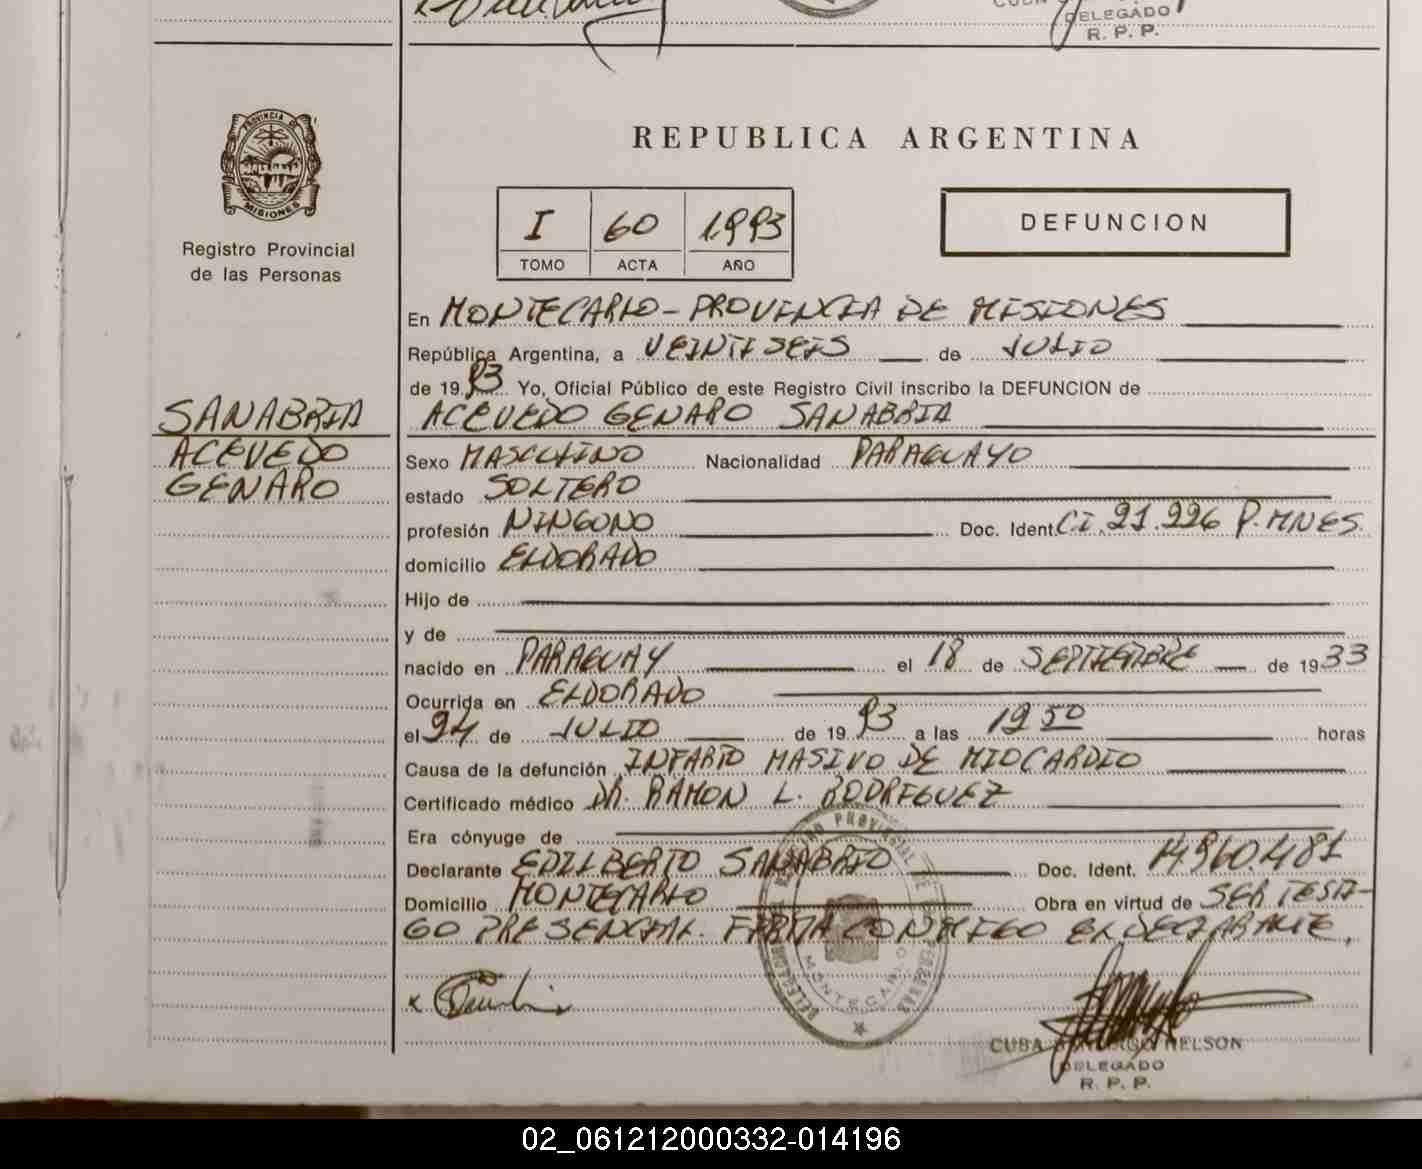 DELEGADO
R. P. P.
PROVINCIA DE
MISIONES
Registro Provincial
de las Personas
REPUBLICA ARGENTINA
I 60 1993
TOMO ACTA AÑO
DEFUNCION
En MONTECARLO - PROVINCIA DE MISIONES
República Argentina, a VEINTISEIS de JULIO
de 19 93 Yo, Oficial Público de este Registro Civil inscribo la DEFUNCION de
SANABRIA
ACEVEDO
GENARO
ACEVEDO GENARO SANABRIA
Sexo MASCULINO Nacionalidad PARAGUAYO
estado SOLTERO
profesión NINGUNO Doc. Ident. C.I. 21.226 P. MNES.
domicilio ELDORADO
Hijo de
y de
nacido en PARAGUAY el 18 de SEPTIEMBRE de 1933
Ocurrida en ELDORADO
el 24 de JULIO de 19 93 a las 19 50 horas
Causa de la defunción INFARTO MASIVO DE MIOCARDIO
Certificado médico DR. RAMON L. RODRIGUEZ
Era cónyuge de
Declarante EDILBERTO SANABRIA Doc. Ident. 14.960.481
Domicilio MONTECARLO Obra en virtud de SER TESTI-
GO PRESENCIAL. FIRMA CONMIGO EL DECLARANTE.
MONTECARLO
CUBA NELSON
DELEGADO
R. P. P.
02_061212000332-014196